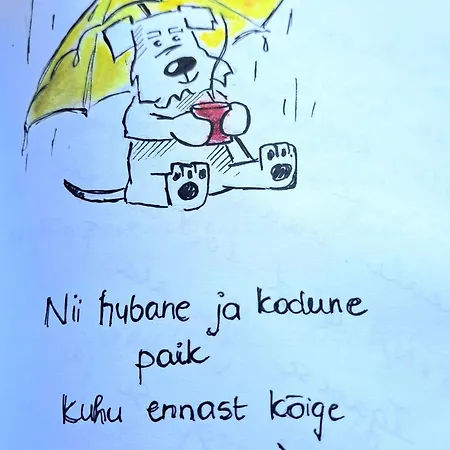 Nii hubane ja kodune
paik
kuhu ennast kõige